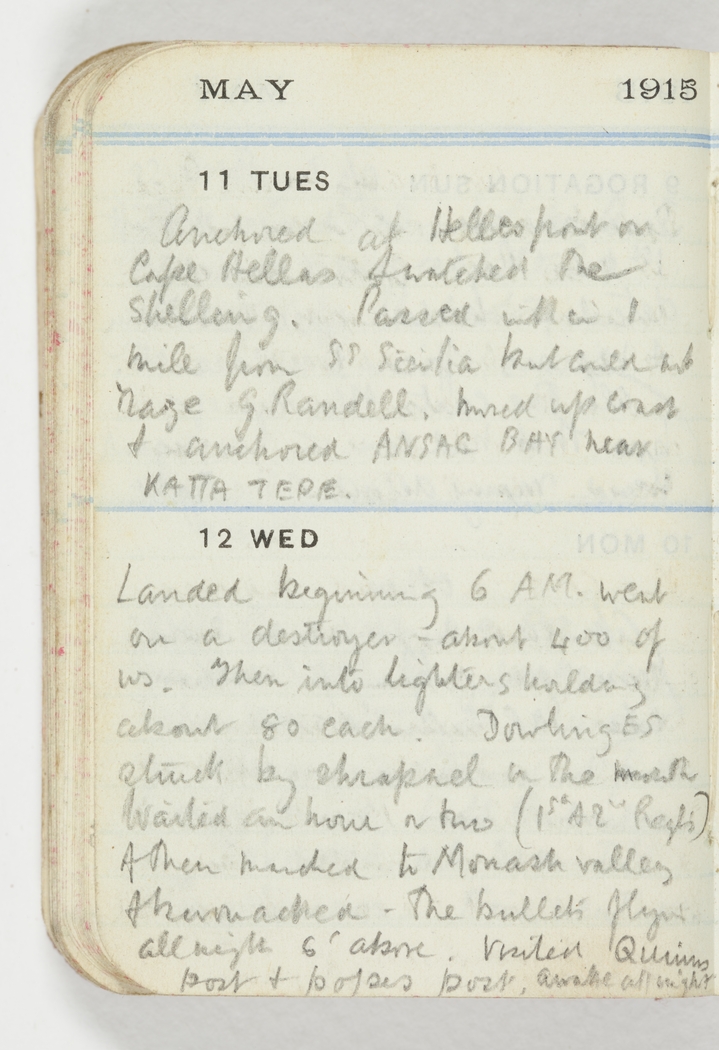 MAY 1915
11 TUES
Anchored at Hellespont or
Cape Hellas & watched the
shelling. Passed within 1
mile from SS Scicilia but could not
G. Randell. Moved up coast
& anchored ANSAC BAY near
KATTA TEPE.
12 WED
Landed beginning 6 AM. went
on a destroyer - about 400 of
us. Then into lighters holding
about 80 each. Dowling ES
stuck by shrapnel in the mouth
Waited an hour or two (1st & 2nd Regts)
& then marched to Monash valley
& bivouacked - The bullets flying
all night 6' above. Visited Quinns
post & popes post, awake all night